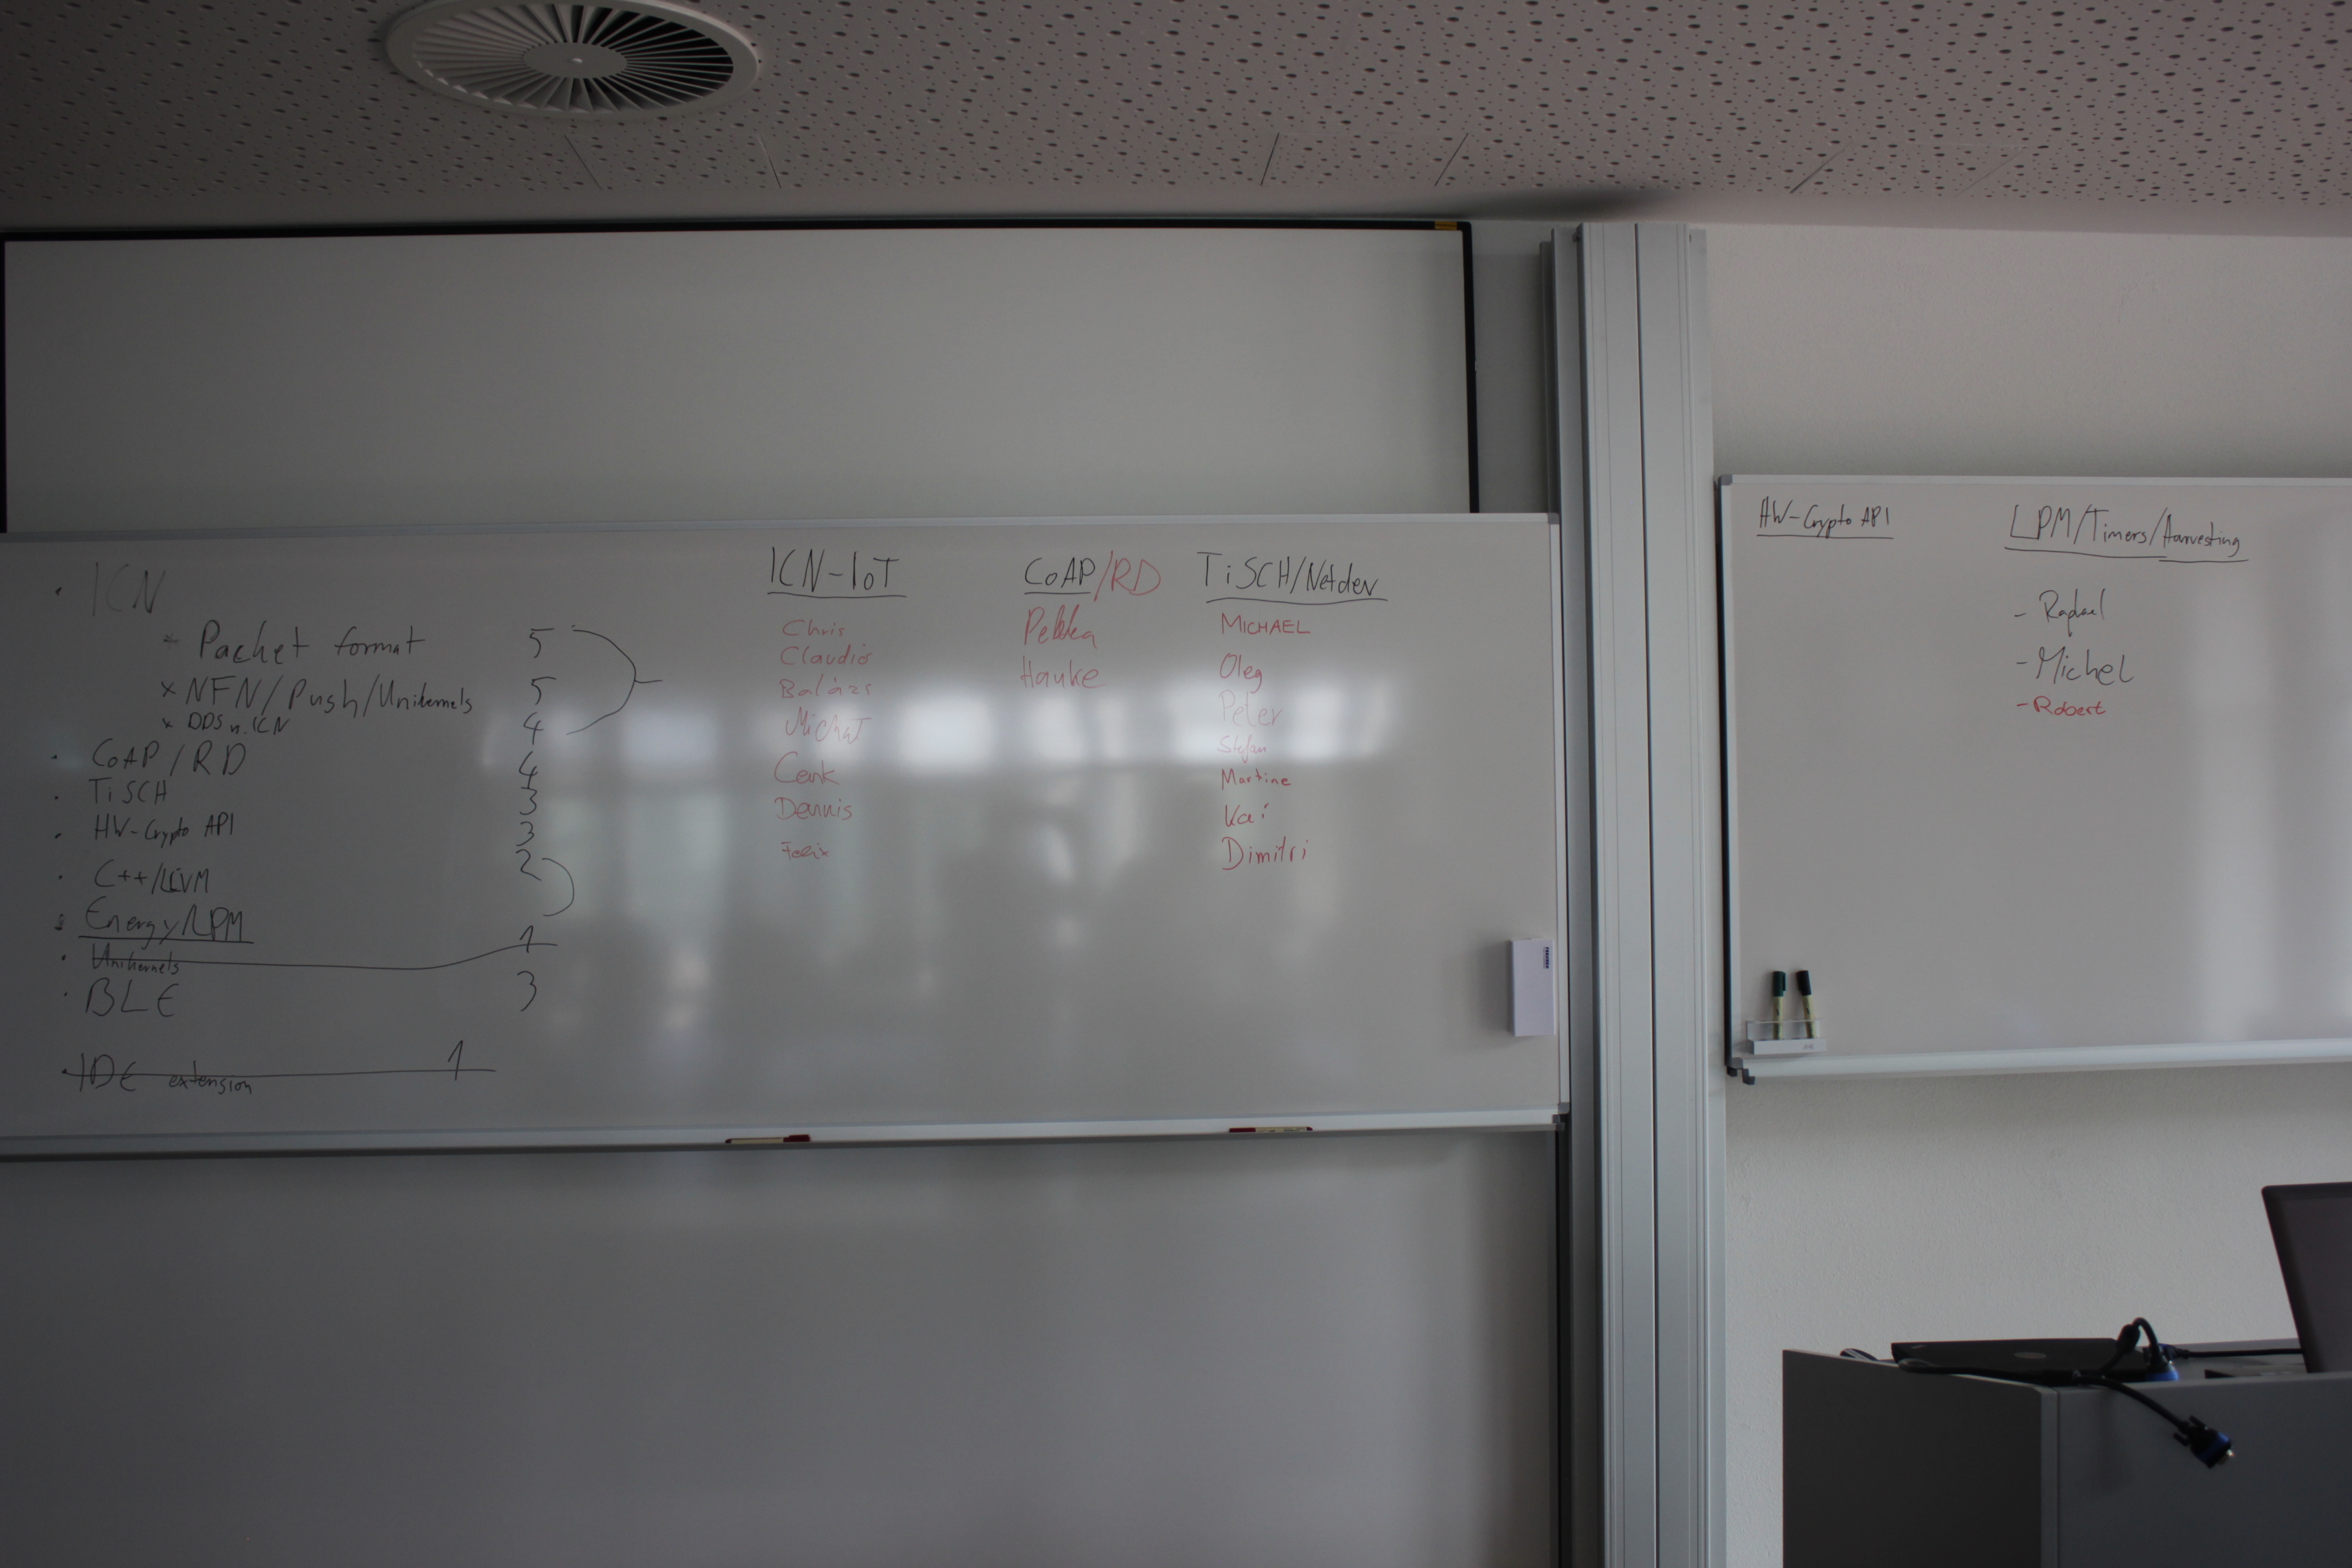 · ICN
* Packet format 5
x NFN/Push/Unikernels 5
x DDS n. ICN 4
· CoAP/RD 4
· TiSCH 3
· HW-Crypto API 3
· C++/LLVM 2
· Energy/LPM
· Unikernels 1
· BLE 3
· IDE extension 1
ICN-IoT
Chris
Claudio
Balázs
Michał
Cenk
Dennis
Felix
CoAP/RD
Pekka
Hauke
TiSCH/Netdev
MICHAEL
Oleg
Peter
Stefan
Martine
Kai
Dimitri
HW-Crypto API
LPM/Timers/Harvesting
- Raphael
- Michel
- Robert